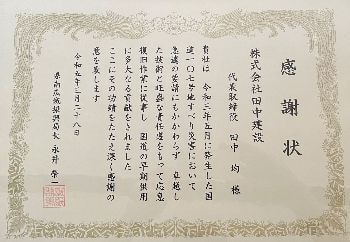 感謝状
株式会社田中建設
代表取締役 田中 均 様
貴社は 令和三年五月に発生した国
道一〇七号地すべり災害において
急遽の要請にもかかわらず 卓越し
た技術と旺盛な責任感をもって応急
復旧作業に従事し 国道の早期供用
に多大なる貢献をされました
ここにその功績をたたえ深く感謝の
意を表します
令和五年三月二十八日
県南広域振興局長 永井 榮一